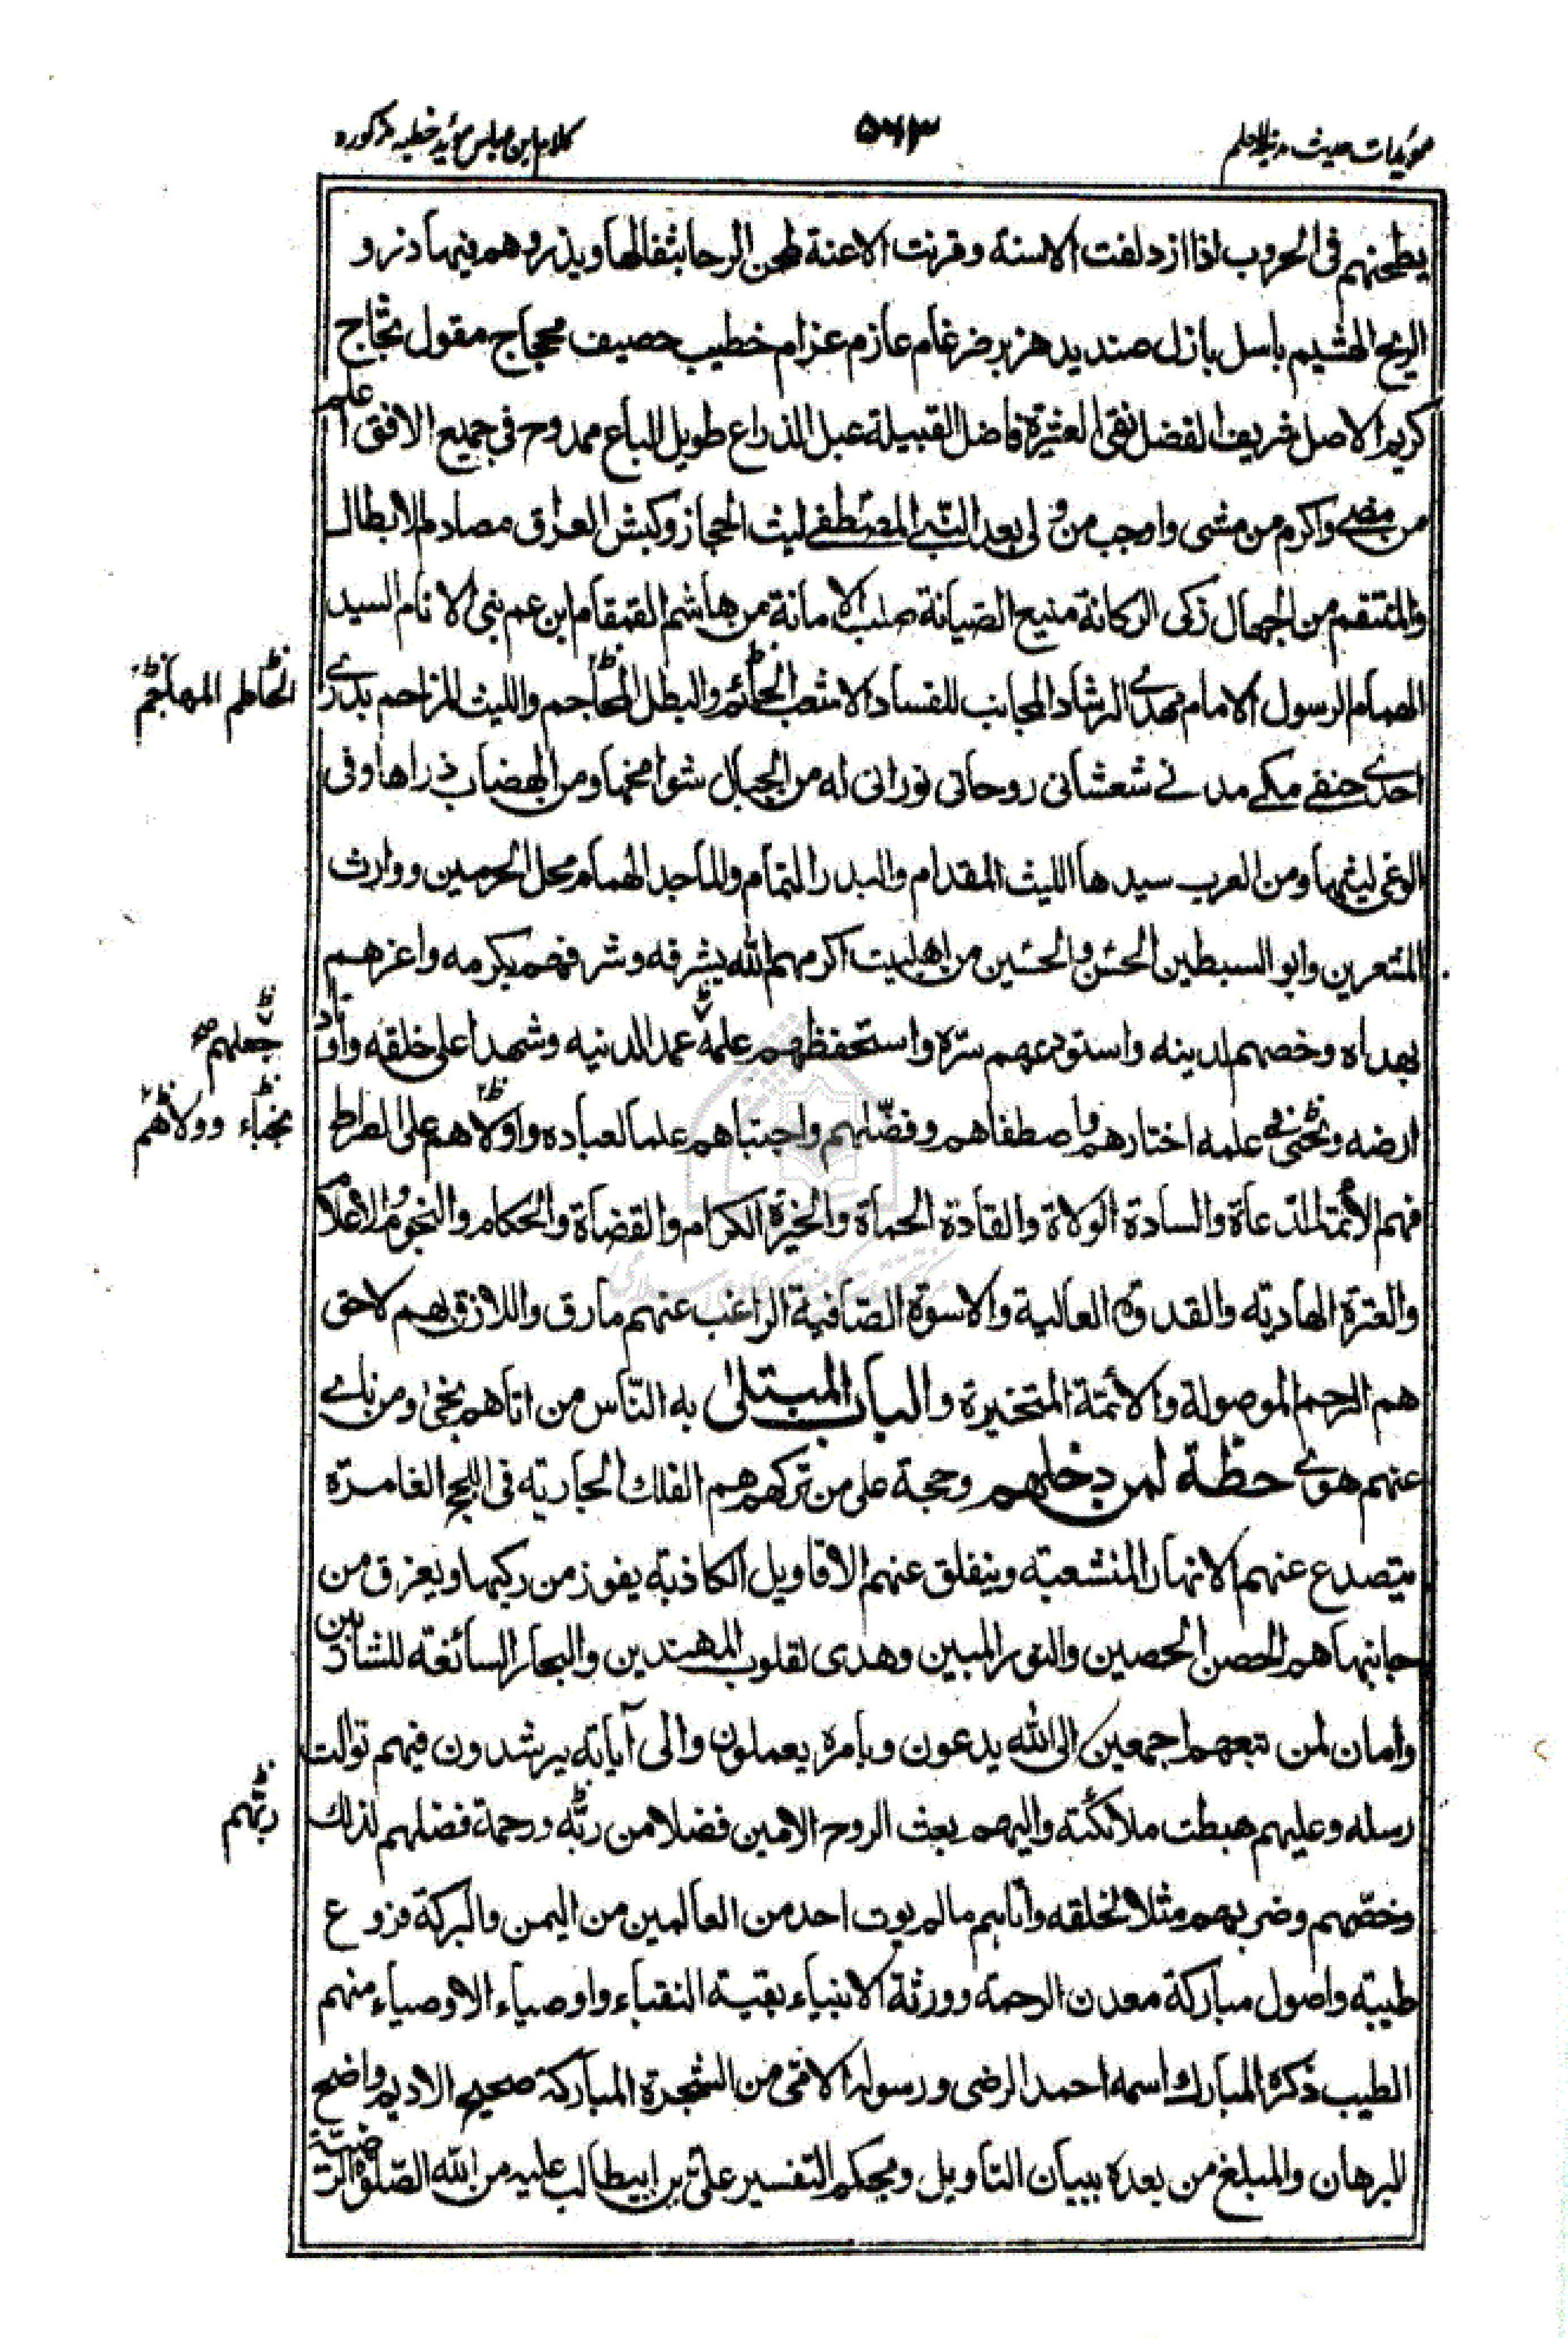 مؤيدات حديث مدينة العلم
۵۶۳
كلام ابن عباس مؤيد خطبه مذكوره
يطحنهم فى الحروب اذا ازدلفت الاسنة وقرنت الاعنة طحن الرحا بثفالها ويذروهم فيها ذرو
الريح الهشيم باسل بازل صنديد هزبر ضرغام عازم عزام خطيب حصيف محجاج مقول ثجّاج
كريم الاصل شريف الفضل نقى العشيرة فاضل القبيلة عبل الذراع طويل الباع ممدوح فى جميع الافق اعلم
من مضى واكرم من مشى واوجب من ولى بعد النّبى المصطفى ليث الحجاز وكبش العراق مصادم الابطال
والمنتقم من الجهال زكى الركانة منيع الصيانة صلب الامانة من هاشم القمقام ابن عم نبى الانام السيد
الهمام الرسول الامام مهدى الرشاد المجانب للفساد الاشعب الحائم والبطل المحاجم والليث المزاحم بدرى
الحاطم المهاجم
احدى حنفى مكى مدنى شعشانى روحانى نورانى له من الجبال شوامخها ومن الهضاب ذراها وفى
الوغى ليثها ومن العرب سيدها الليث المقدام والبدر التمام والماجد الهمام محل الحرمين ووارث
المشعرين وابو السبطين الحسن والحسين من اهلبيت اكرمهم الله بشرفه وشرفهم بكرمه واعزهم
بهداه وخصهم لدينه واستودعهم سرّه واستحفظهم علمه عمد الدينه وشهدا على خلقه واوتاد
جعلهم
ارضه ونجى فى علمه اختارهم واصطفاهم وفضّلهم واجتباهم علما لعباده واولاهم على الصراط
نجباء وولاهم
فهم الأئمة الدعاة والسادة الولاة والقادة الحماة والخيرة الكرام والقضاة والحكام والنجوم الاعلام
والعترة الهاديه والقدوة العالية والاسوة الصّافية الراغب عنهم مارق واللازق بهم لاحق
هم الرحم الموصولة والأئمة المتخيرة والباب المبتلى به النّاس من اتاهم نجى ومن ناى
عنهم هوى حطّة لمن دخلهم وحجة على من تركهم هم الفلك الجاريه فى اللجج الغامرة
يتصدع عنهم الانهار المنشعبه وينفلق عنهم الاقاويل الكاذبه يفوز من ركبها ويغرق من
جانبها هم الحصن الحصين والنور المبين وهدى لقلوب المهتدين والبحار السائغه للشاربين
وامان لمن تبعهم اجمعين الى الله يدعون وبامره يعملون والى آياته يرشدون فيهم توالت
رسله وعليهم هبطت ملائكته واليهم بعث الروح الامين فضلا من ربّه ورحمة فضلهم لذلك
ربّهم
وخصّهم وضربهم مثلا لخلقه وآتاهم مالم يوت احد من العالمين من اليمن والبركة فروع
طيبه واصول مباركة معدن الرحمه وورثة الانبياء بقية النقباء واوصياء الاوصياء منهم
الطيب ذكره المبارك اسمه احمد الرضى ورسوله الامى من الشجرة المباركة صحيح الاديم واضح
البرهان والمبلغ من بعده ببيان التاويل ومحكم التفسير علىّ بن ابيطالب عليه من الله الصّلوة الرضيّة